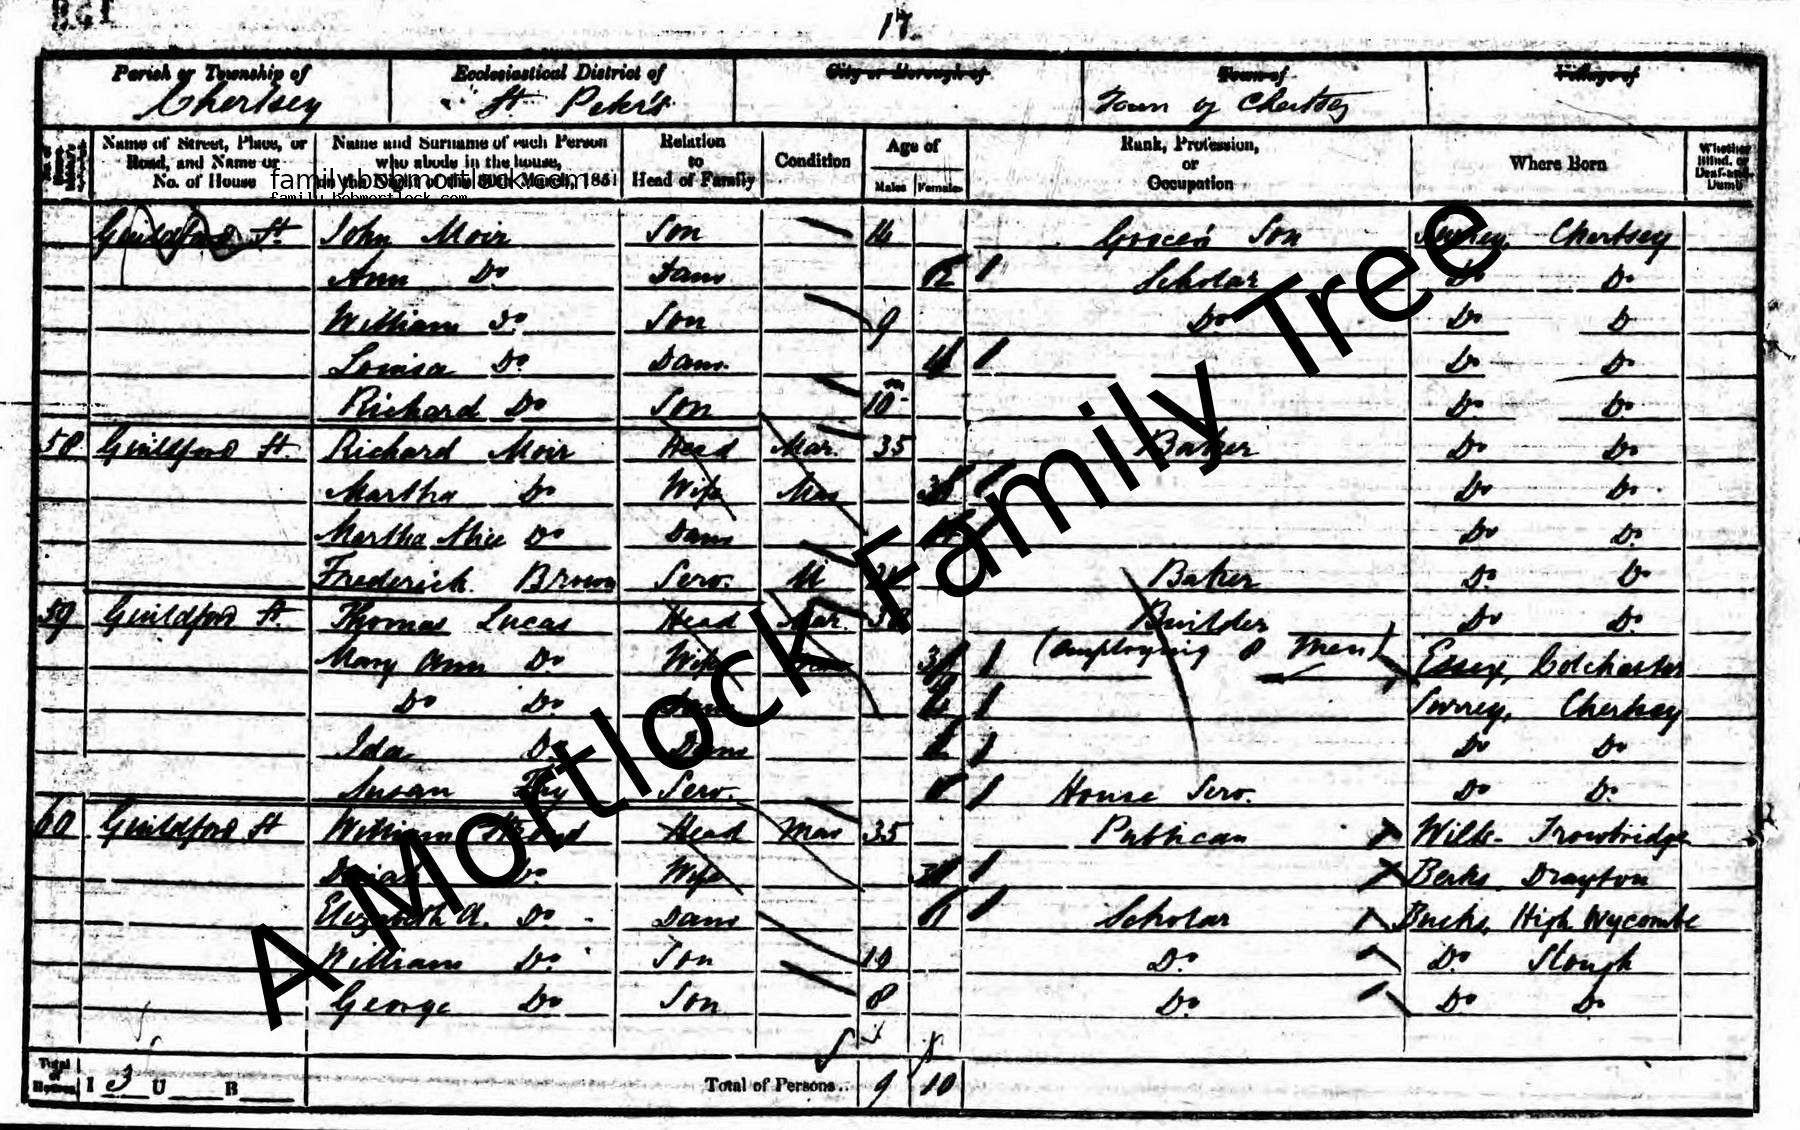 17.
Parish or Township of Ecclesiastical District of City or Borough of Town of Village of
Chertsey St Peter's Town of Chertsey
Name of Street, Place, or Name and Surname of each Person Relation Condition Age of Rank, Profession, Where Born Whether
Road, and Name or who abode in the house, to or Blind, or
No. of House on the Night of the 30th March, 1851 Head of Family Males Females Occupation Deaf-and-Dumb
family.bobmortlock.com
family.bobmortlock.com
Guildford St John Moir Son 16 Grocer's Son Surrey, Chertsey
Ann Do Daur 12 Scholar Do Do
William Do Son 9 Do Do Do
Louisa Do Daur 4 Do Do
Richard Do Son 10 m Do Do
58 Guildford St. Richard Moir Head Mar. 35 Baker Do Do
Martha Do Wife Mar Do Do
Martha Alice Do Daur Do Do
Frederick Brown Serv. U Baker Do Do
59 Guildford St. Thomas Lucas Head Mar. 38 Builder Do Do
(employing 8 Men)
Mary Ann Do Wife Essex, Colchester
Do Do Daur Surrey, Chertsey
Ida Do Daur Do Do
Susan Serv. House Serv. Do Do
60 Guildford St William Head Mar 35 Publican Wilts- Trowbridge
Do Wife Berks. Drayton
Elizabeth A. Do Daur Scholar Bucks, High Wycombe
William Do Son 10 Do Do Slough
George Do Son 8 Do Do Do
Total of Houses I 3 U B Total of Persons.. 9 10
A Mortlock Family Tree